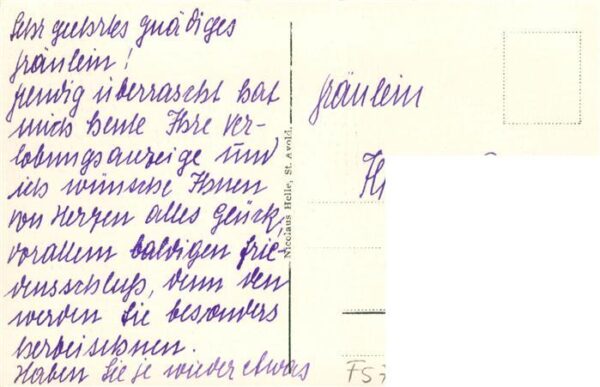 Sehr geehrtes gnädiges
Fräulein!
Freudig überrascht hat
mich heute Ihre Ver-
lobungsanzeige und
ich wünsche Ihnen
von Herzen alles Glück,
vorallem baldigen Frie-
densschluß, denn den
werden Sie besonders
herbeisehnen.
Haben Sie je wieder etwas
Nicolaus Helle, St. Avold.
Fräulein
FS